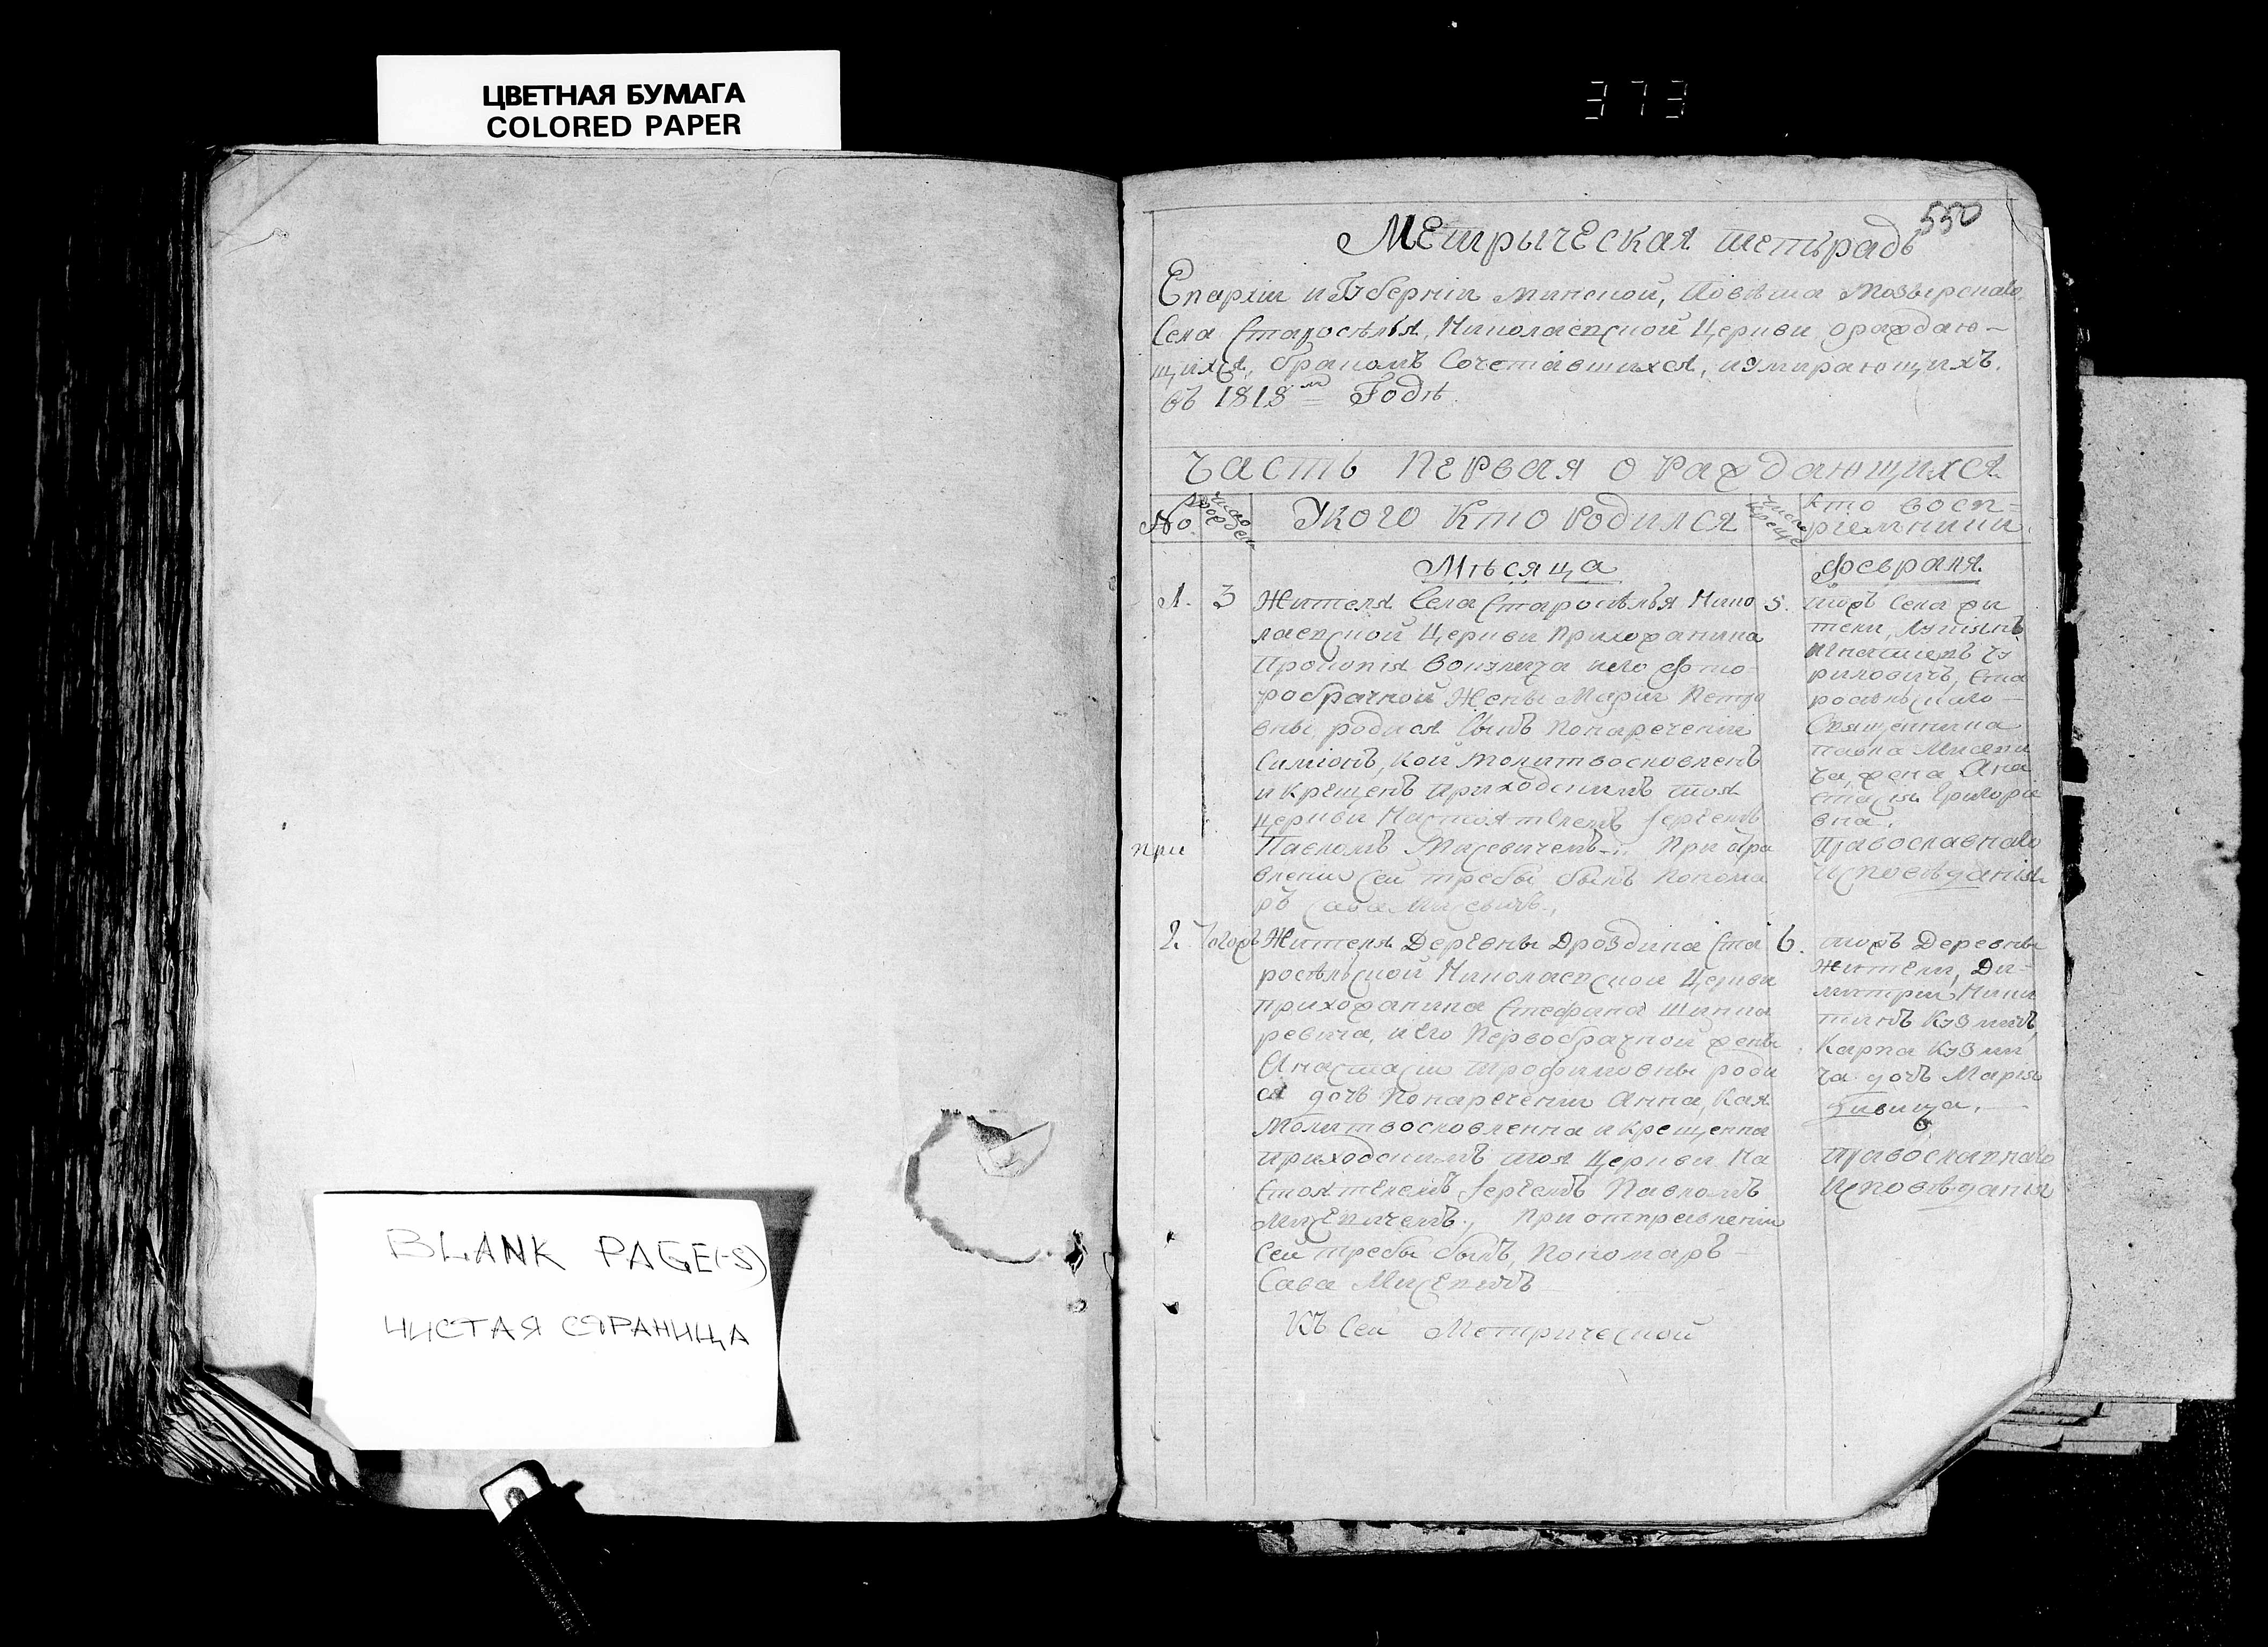 ЦВЕТНАЯ БУМАГА
COLORED PAPER
373
BLANK PAGE(-S)
ЧИСТАЯ СТРАНИЦА
550
Метрыческая тетьрадь
Епархіи и Губерніи Минской, Повѣта Мозырскаго,
Села Старосѣлья, Николаевской Церкви, ораждаю-
щихся, бракомъ Сочетавшихся, иумирающихъ.
въ 1818м Годѣ.
Часть первая о раждающихся
No.
Укого кто родился
кто восп-
ріемники
Мѣсяца
Февраля
1. 3
Жителя Села Старосѣлья Нико
лаевской Церкви Прихожанина
Прокопія
робрачной Жены Маріи Петро
вны, родися Сынъ Понареченіи
Симіонъ, кой Молитвословленъ
и крещенъ приходскимъ тоя
Церкви Настоятелемъ Іереемъ
при
Павломъ Мисевичемъ. При отра
влении сей требы былъ Понома
ръ Сава Мисевичъ.,
5.
тоехъ Села жи
тели,
риловичъ, Ста
росѣльскаго
Священника
Павла Мисеви
ча, жена Ана
стасія Григоріе
вна.
Православнаго
Исповѣданія
2. Тогожъ
Жителя Деревны Дроздина Ста
росѣльской Николаевской Церкви
прихожанина Стефана Шинка
ревича, иего Первобрачной жены
Анастасіи Трофимовны роди
ся дочь Понареченіи Анна, кая
Молитвословленна и крещенна
приходскимъ тоя Церкви На
стоятелемъ Іереемъ Павломъ
Мисевичемъ., При отправленіи
сей требы былъ, Пономаръ
Сава Мисевичъ
6.
Деревны
Жители, Ди-
митрій Ники
Кузмичъ,
Карпа Кузми
ча дочь Марія
Православнаго
Исповѣданія
Къ Сей Метрической